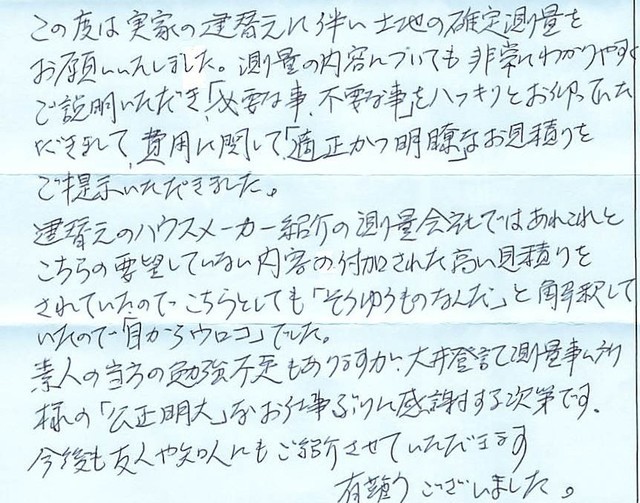 この度は実家の建替えに伴い土地の確定測量を
お願いいたしました。測量の内容についても非常にわかりやすく
ご説明いただき、「必要な事、不要な事」をハッキリとおっしゃっていた
だきまして、費用に関して「適正かつ明瞭」なお見積りを
ご提示いただきました。
建替えのハウスメーカー紹介の測量会社ではあれこれと
こちらの要望していない内容の付加された高い見積りを
されていたので、こちらとしても「そうゆうものなんだ」と解釈して
いたので「目からウロコ」でした。
素人の当方の勉強不足もありますが、大井登記測量事ム所
様の「公正明大」なお仕事ぶりに感謝する次第です。
今後も友人や知人にもご紹介させていただきます
有難うございました。